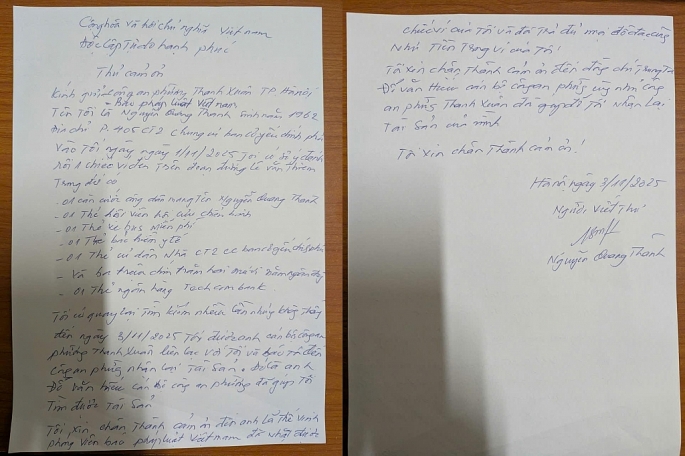 Cộng hòa xã hội chủ nghĩa Việt nam
Độc Lập Tự do hạnh phúc
Thư cảm ơn
Kính gửi Công an phường Thanh Xuân TP. Hà nội
- Báo pháp luật Việt nam
Tên Tôi là Nguyễn Quang Thành sinh năm 1962
Địa chỉ P. 405 CT2 Chung cư ban cơ yếu chính phủ
Vào Tối ngày 1/11/2025 Tôi có sơ ý đánh
rơi 1 chiếc ví đen trên đoạn đường Lê Văn Thiêm
Trong đó có
- 01 căn cước công dân mang tên Nguyễn Quang Thành
- 01 Thẻ hội viên hội cựu chiến binh
- 01 Thẻ xe buýt miễn phí
- 01 Thẻ bảo hiểm y tế
- 01 Thẻ cư dân Nhà CT2 CC ban cơ yếu chính phủ
- Và ba triệu chín trăm hai mươi năm ngàn đồng
- 01 Thẻ ngân hàng Techcombank
Tôi có quay lại Tìm kiếm nhiều lần nhưng không thấy
đến ngày 3/11/2025 Tôi được anh cán bộ công an
phường Thanh Xuân liên lạc với Tôi và báo Tôi đến
công an phường nhận lại Tài Sản. đó là anh
Đỗ Văn Hiếu cán bộ công an phường đã giúp Tôi
Tìm được Tài Sản
Tôi xin chân Thành cảm ơn đến anh Lã Thế Vinh
phóng viên báo pháp luật Việt nam đã nhặt được
chiếc ví của Tôi và đã trả đủ mọi đồ đạc cũng
Như Tiền Trong ví của Tôi!
Tôi xin chân Thành cảm ơn đến đồng chí Trung Tá
Đỗ Văn Hiếu cán bộ công an phường cũng như công
an phường Thanh Xuân đã giúp đỡ Tôi Nhận Lại
Tài Sản của mình
Tôi xin chân Thành cảm ơn!
Hà nội ngày 3/11/2025
Người Viết Thư
Nguyễn Quang Thành